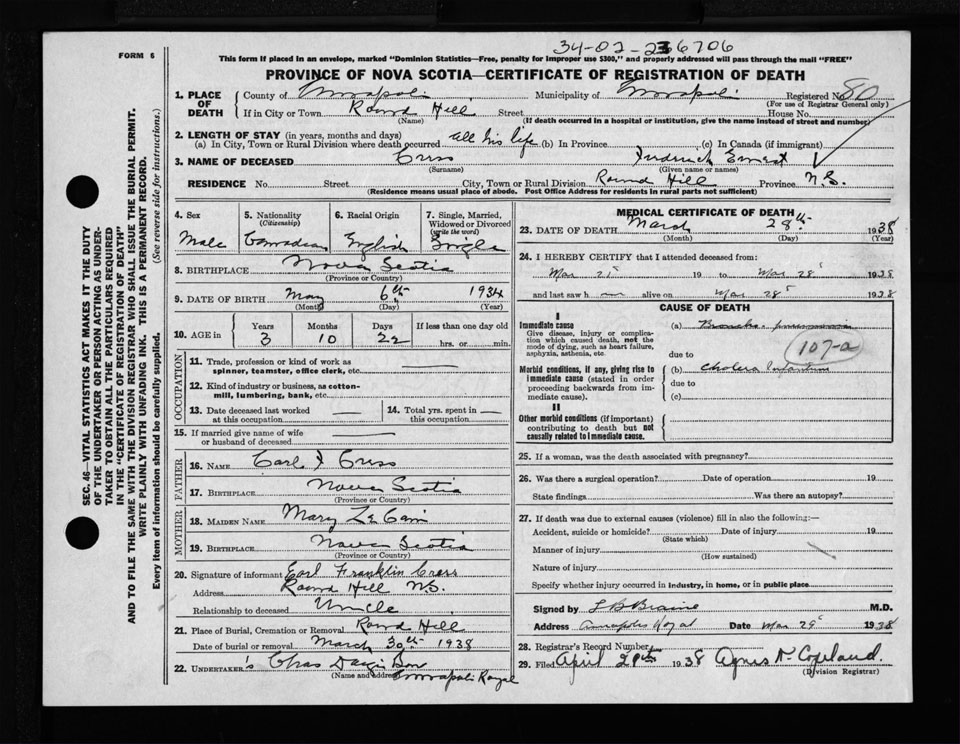 34-02-236706
FORM 6
This form if placed in an envelope, marked "Dominion Statistics—Free, penalty for improper use $300," and properly addressed will pass through the mail "FREE"
PROVINCE OF NOVA SCOTIA—CERTIFICATE OF REGISTRATION OF DEATH
1. PLACE OF DEATH County of Annapolis Municipality of Annapolis Registered No. 80
(For use of Registrar General only)
If in City or Town Round Hill Street House No.
(Name) (If death occurred in a hospital or institution, give the name instead of street and number)
2. LENGTH OF STAY (in years, months and days)
(a) In City, Town or Rural Division where death occurred all his life (b) In Province (c) In Canada (if immigrant)
3. NAME OF DECEASED Criss Fredrick Ernest
(Surname) (Given name or names)
RESIDENCE No. Street City, Town or Rural Division Round Hill Province N.S.
(Residence means usual place of abode. Post Office Address for residents in rural parts not sufficient)
4. Sex Male
5. Nationality (Citizenship) Canadian
6. Racial Origin English
7. Single, Married, Widowed or Divorced (write the word) Single
8. BIRTHPLACE Nova Scotia
(Province or Country)
9. DATE OF BIRTH May 6th 1934
(Month) (Day) (Year)
10. AGE in Years Months Days If less than one day old
3 10 22 hrs. or min.
OCCUPATION
11. Trade, profession or kind of work as spinner, teamster, office clerk, etc.
12. Kind of industry or business, as cotton-mill, lumbering, bank, etc.
13. Date deceased last worked at this occupation
14. Total yrs. spent in this occupation
15. If married give name of wife or husband of deceased
FATHER
16. NAME Carl F Criss
17. BIRTHPLACE Nova Scotia
(Province or Country)
MOTHER
18. MAIDEN NAME Mary LeCain
19. BIRTHPLACE Nova Scotia
(Province or Country)
20. Signature of informant Earl Franklin Criss
Address Round Hill N.S.
Relationship to deceased Uncle
21. Place of Burial, Cremation or Removal Round Hill
Date of burial or removal March 30th 1938
22. UNDERTAKER'S Chas
(Name and address) Annapolis Royal
MEDICAL CERTIFICATE OF DEATH
23. DATE OF DEATH March 28th 1938
(Month) (Day) (Year)
24. I HEREBY CERTIFY that I attended deceased from:
Mar 21 19 to Mar 28 1938
and last saw h alive on Mar 28 1938
CAUSE OF DEATH
I
Immediate cause
Give disease, injury or complication which caused death, not the mode of dying, such as heart failure, asphyxia, asthenia, etc.
(a) Broncho-pneumonia
107-a
due to
Morbid conditions, if any, giving rise to immediate cause (stated in order proceeding backwards from immediate cause).
(b) Cholera Infantum
due to
(c)
II
Other morbid conditions (if important) contributing to death but not causally related to immediate cause.
25. If a woman, was the death associated with pregnancy?
26. Was there a surgical operation? Date of operation 19
State findings Was there an autopsy?
27. If death was due to external causes (violence) fill in also the following:—
Accident, suicide or homicide? Date of injury 19
(State which)
Manner of injury
(How sustained)
Nature of injury
Specify whether injury occurred in industry, in home, or in public place
Signed by L B Braine M.D.
Address Annapolis Royal Date Mar 29 1938
28. Registrar's Record Number
29. Filed April 1938 Agnes N Copeland
(Division Registrar)
SEC. 46—VITAL STATISTICS ACT MAKES IT THE DUTY
OF THE UNDERTAKER OR PERSON ACTING AS UNDER-
TAKER TO OBTAIN ALL THE PARTICULARS REQUIRED
IN THE "CERTIFICATE OF REGISTRATION OF DEATH"
AND TO FILE THE SAME WITH THE DIVISION REGISTRAR WHO SHALL ISSUE THE BURIAL PERMIT.
WRITE PLAINLY WITH UNFADING INK. THIS IS A PERMANENT RECORD.
Every item of information should be carefully supplied. (See reverse side for instructions.)